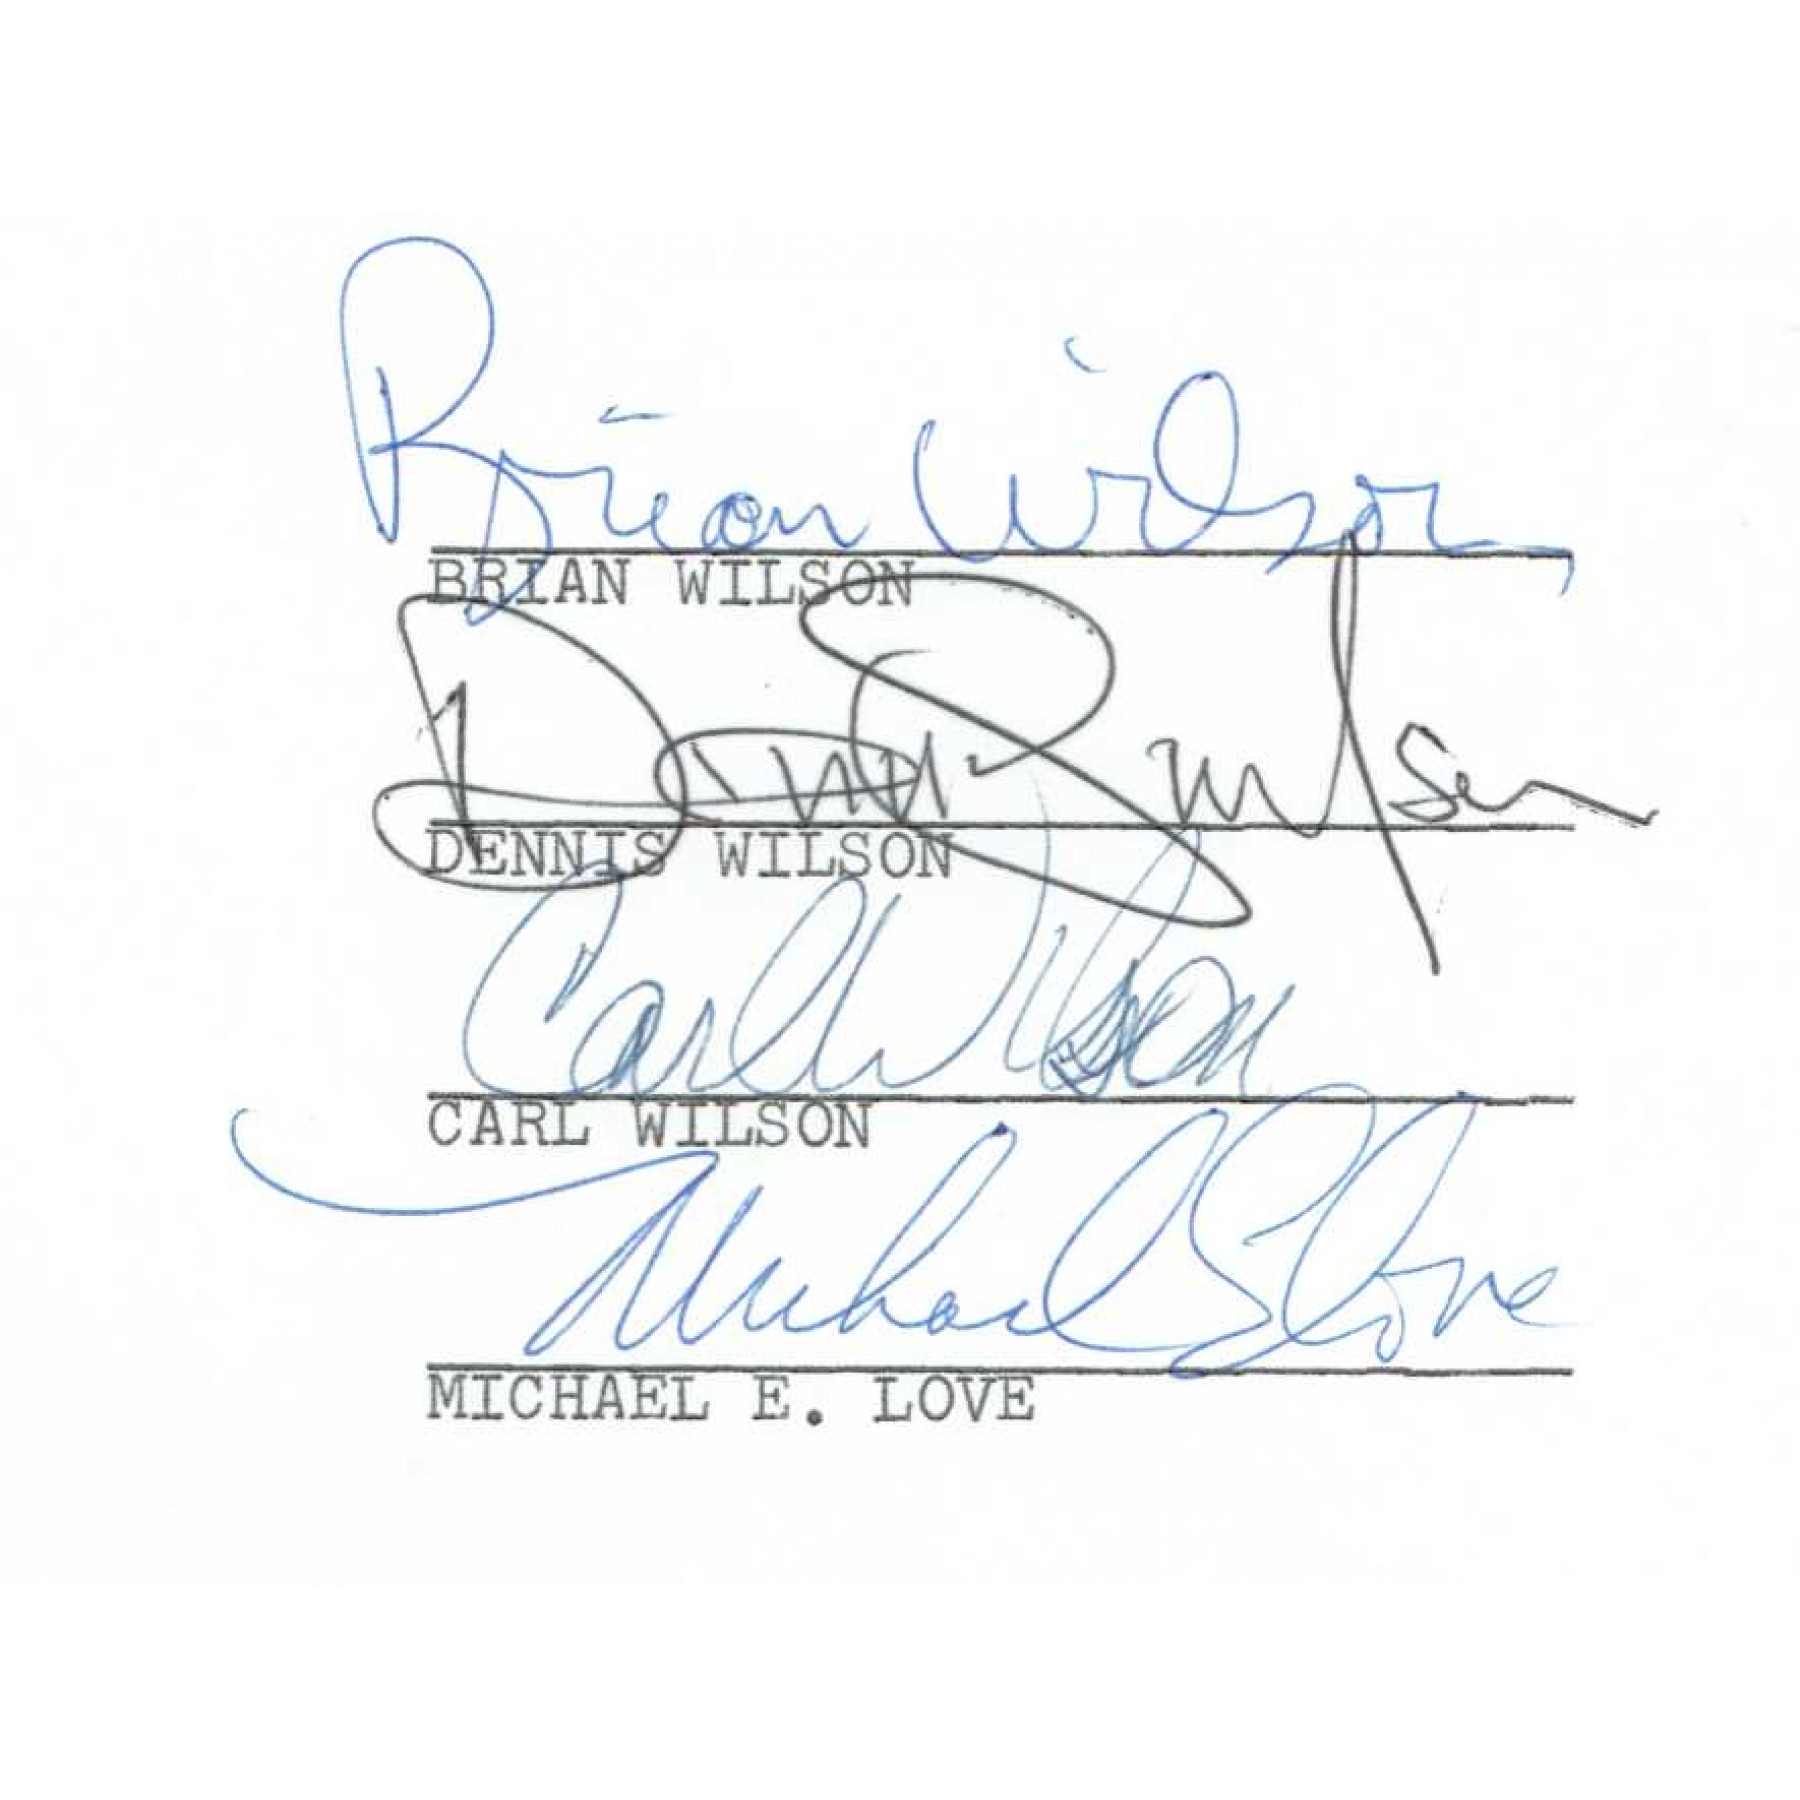 Brian Wilson
BRIAN WILSON
Dennis Wilson
DENNIS WILSON
Carl Wilson
CARL WILSON
Michael E Love
MICHAEL E. LOVE